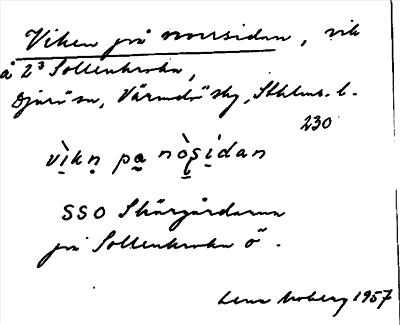 Viken på norrsidan, vik
å 2³ Sollenkroka,
Djurö sn, Värmdö sky, Sthlms. l.
230
vìkn pa nòṣidan
SSO Skärgårdarna
på Sollenkroka ö.
Lena Moberg 1957